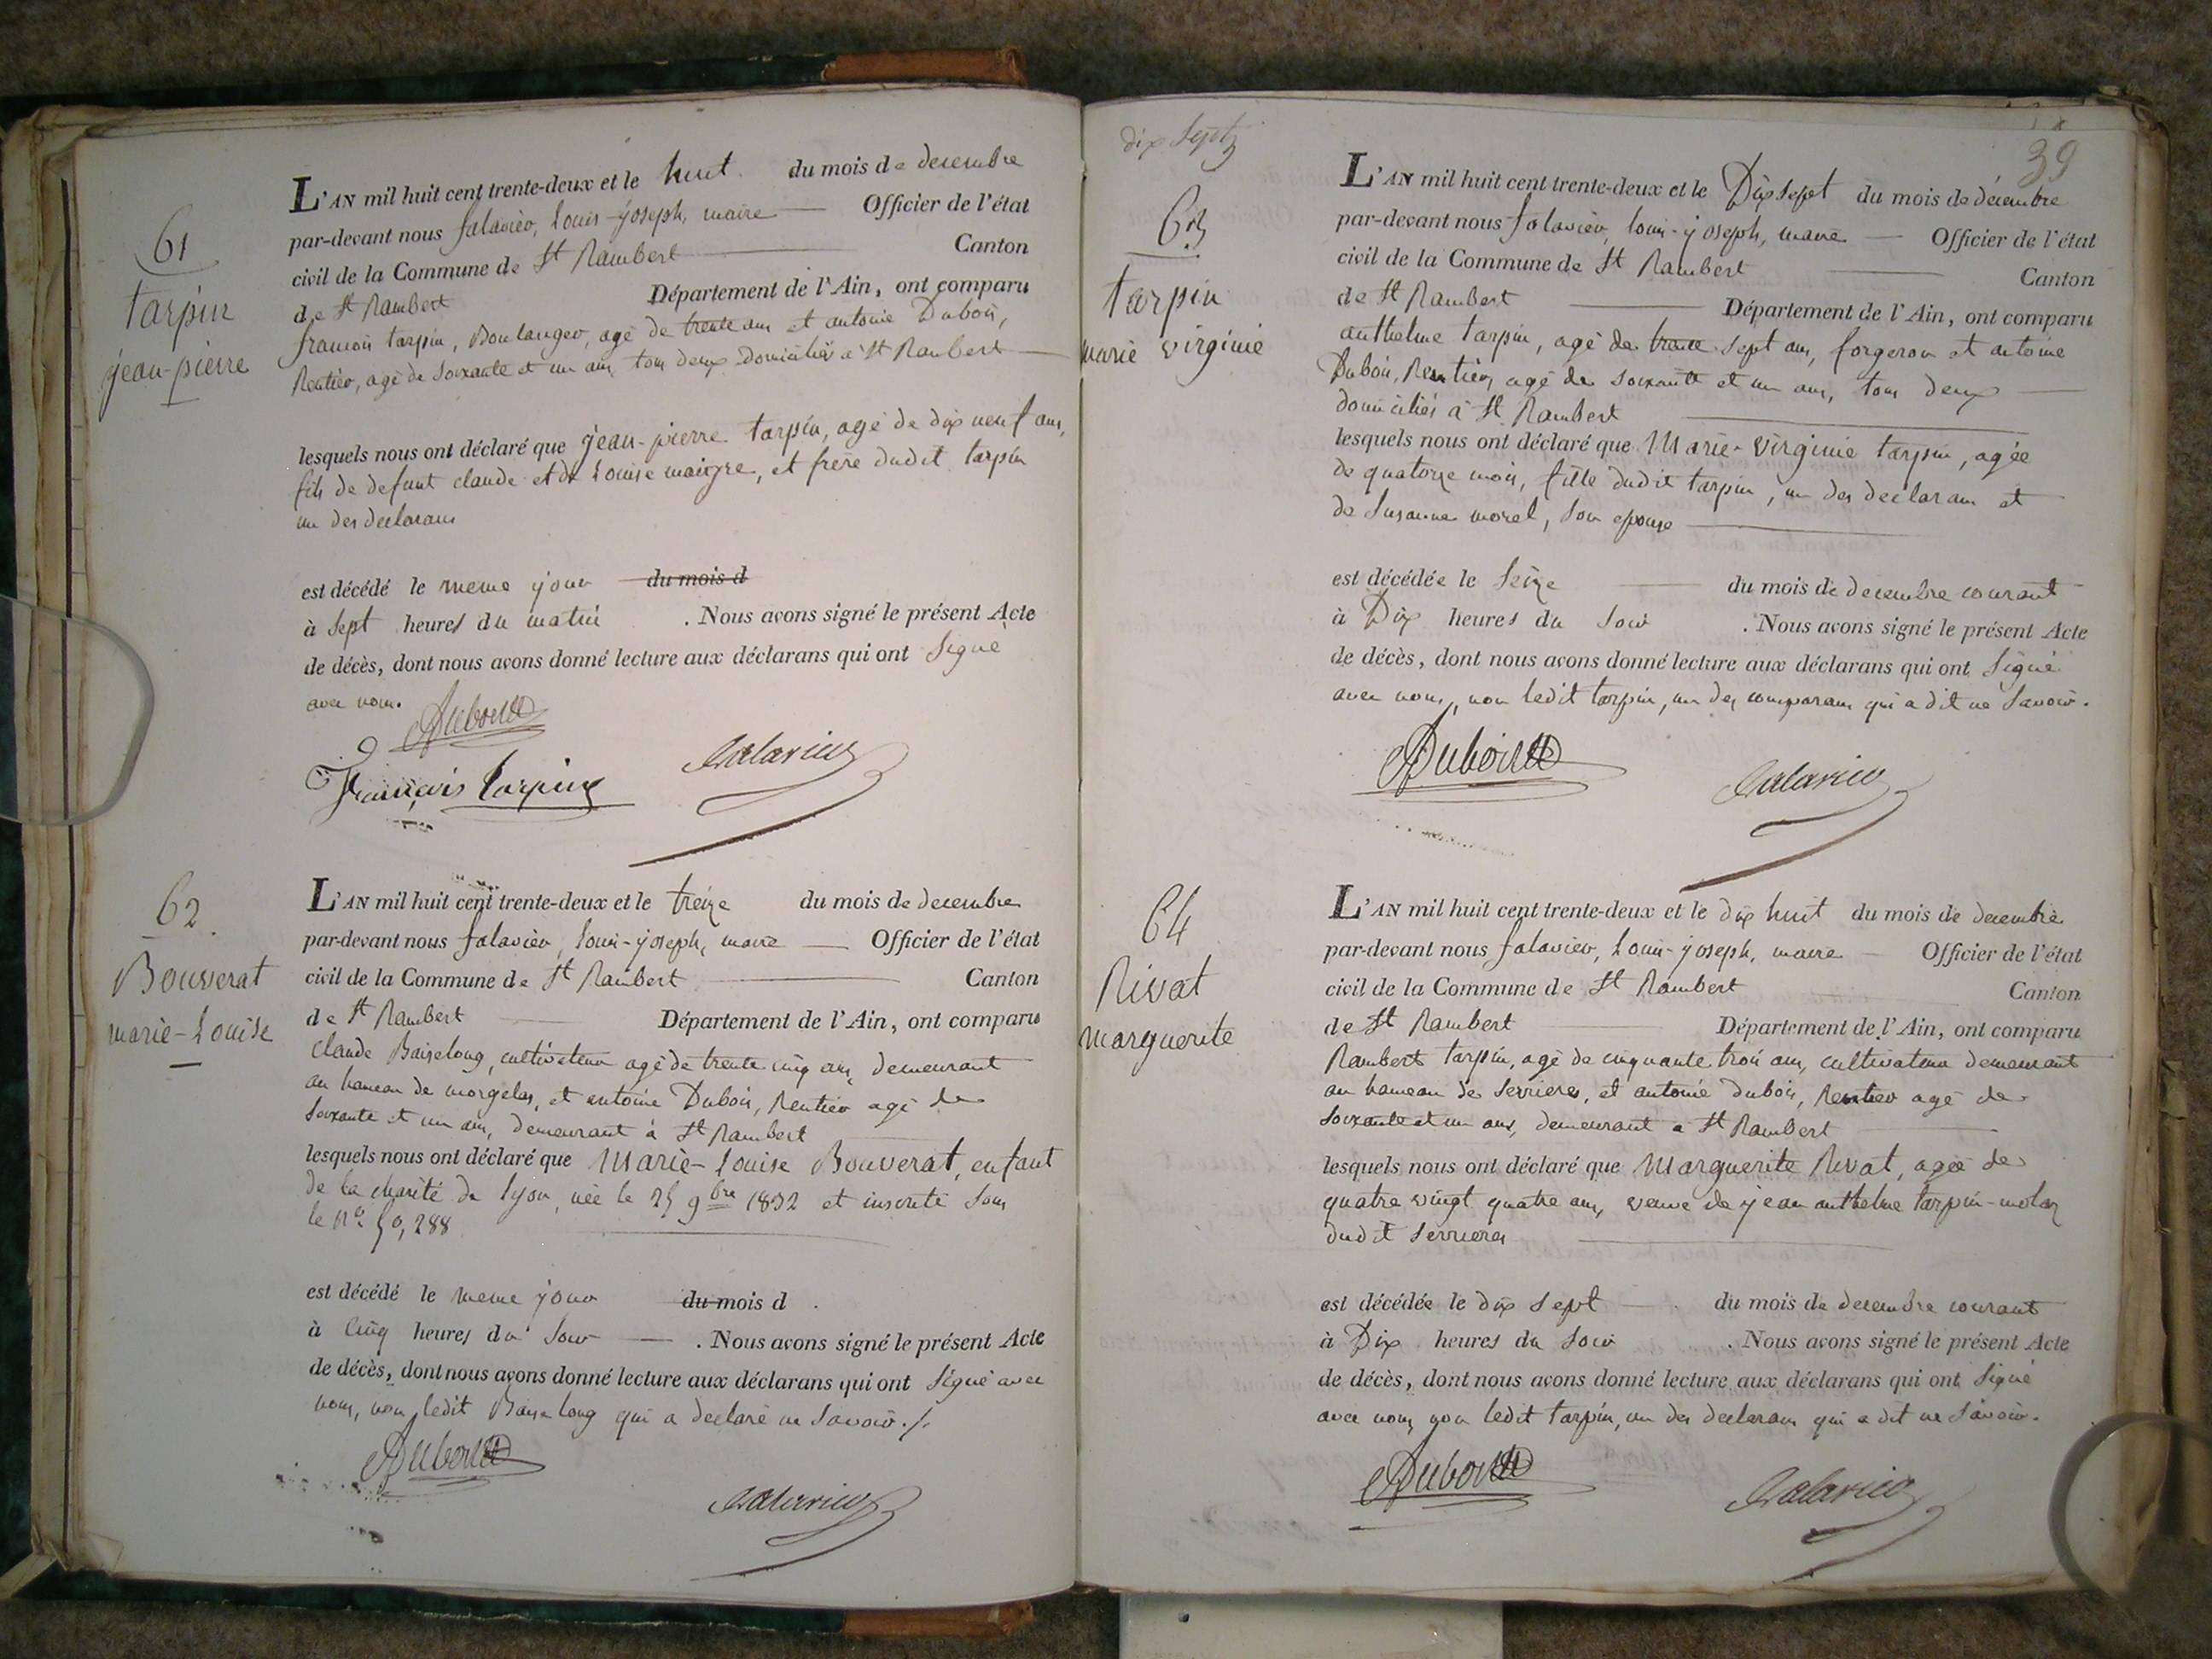 61
tarpin
jean-pierre
L'AN mil huit cent trente-deux et le huit du mois de decembre
par-devant nous falavier, louis-joseph, maire Officier de l'état
civil de la Commune de St Rambert Canton
de St Rambert Département de l'Ain, ont comparu
francois tarpin, Boulanger, agé de trente ans et antoine Dubois,
Rentier, agé de soixante et un ans, tous deux domiciliés à St Rambert
lesquels nous ont déclaré que jean-pierre tarpin, agé de dix neuf ans,
fils de defunt claude et de Louise maigre, et frère dudit tarpin
un des declarans
est décédé le meme jour du mois d
à sept heures du matin . Nous avons signé le présent Acte
de décès, dont nous avons donné lecture aux déclarans qui ont signé
avec nous.
Dubois
François tarpin
falavier
62.
Bouverat
marie-Louise
L'AN mil huit cent trente-deux et le treize du mois de decembre
par-devant nous falavier, louis-joseph, maire Officier de l'état
civil de la Commune de St Rambert Canton
de St Rambert Département de l'Ain, ont comparu
Claude Baiselong, cultivateur agé de trente cinq ans, demeurant
au hameau de morgelas, et antoine Dubois, Rentier agé de
soixante et un ans, demeurant à St Rambert
lesquels nous ont déclaré que Marie-louise Bouverat, enfant
de la charité de lyon, née le 25 9bre 1832 et inscrite sous
le No 50,288
est décédé le meme jour du mois d .
à cinq heures du soir . Nous avons signé le présent Acte
de décès, dont nous avons donné lecture aux déclarans qui ont signé avec
nous, non ledit Baiselong qui a declaré ne savoir./.
Dubois
falavier
dix sept
39
63
tarpin
marie virginie
L'AN mil huit cent trente-deux et le Dix sept du mois de décembre
par-devant nous falavier, louis-joseph, maire Officier de l'état
civil de la Commune de St Rambert Canton
de St Rambert Département de l'Ain, ont comparu
anthelme tarpin, agé de trente sept ans, forgeron et antoine
Dubois, Rentier, agé de soixante et un ans, tous deux
domiciliés à St Rambert
lesquels nous ont déclaré que Marie-virginie tarpin, agée
de quatorze mois, fille dudit tarpin, un des declarans et
de Susanne morel, son epouse
est décédée le seize du mois de decembre courant
à Dix heures du soir . Nous avons signé le présent Acte
de décès, dont nous avons donné lecture aux déclarans qui ont signé
avec nous, non ledit tarpin, un des comparans qui a dit ne savoir.
Dubois
falavier
64
Rivat
marguerite
L'AN mil huit cent trente-deux et le dix huit du mois de decembre
par-devant nous falavier, louis-joseph, maire Officier de l'état
civil de la Commune de St Rambert Canton
de St Rambert Département de l'Ain, ont comparu
Rambert tarpin, agé de cinquante trois ans, cultivateur demeurant
au hameau de serrieres, et antoine dubois, Rentier agé de
soixante et un ans, demeurant à St Rambert
lesquels nous ont déclaré que Marguerite Rivat, agée de
quatre vingt quatre ans, veuve de jean anthelme tarpin-molas
dudit serrieres
est décédée le dix sept du mois de decembre courant
à Dix heures du soir . Nous avons signé le présent Acte
de décès, dont nous avons donné lecture aux déclarans qui ont signé
avec nous non ledit tarpin, un des declarans qui a dit ne savoir.
Dubois
falavier